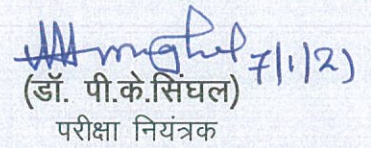 7/1/21
(डॉ. पी.के.सिंघल)
परीक्षा नियंत्रक